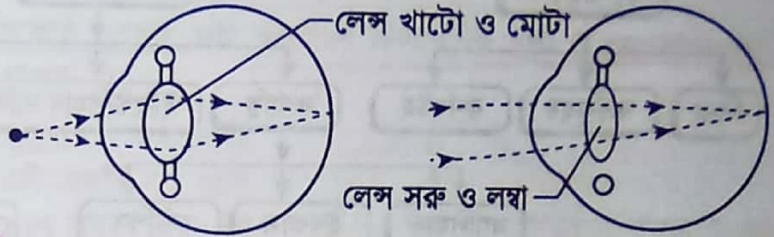 লেন্স খাটো ও মোটা
লেন্স সরু ও লম্বা